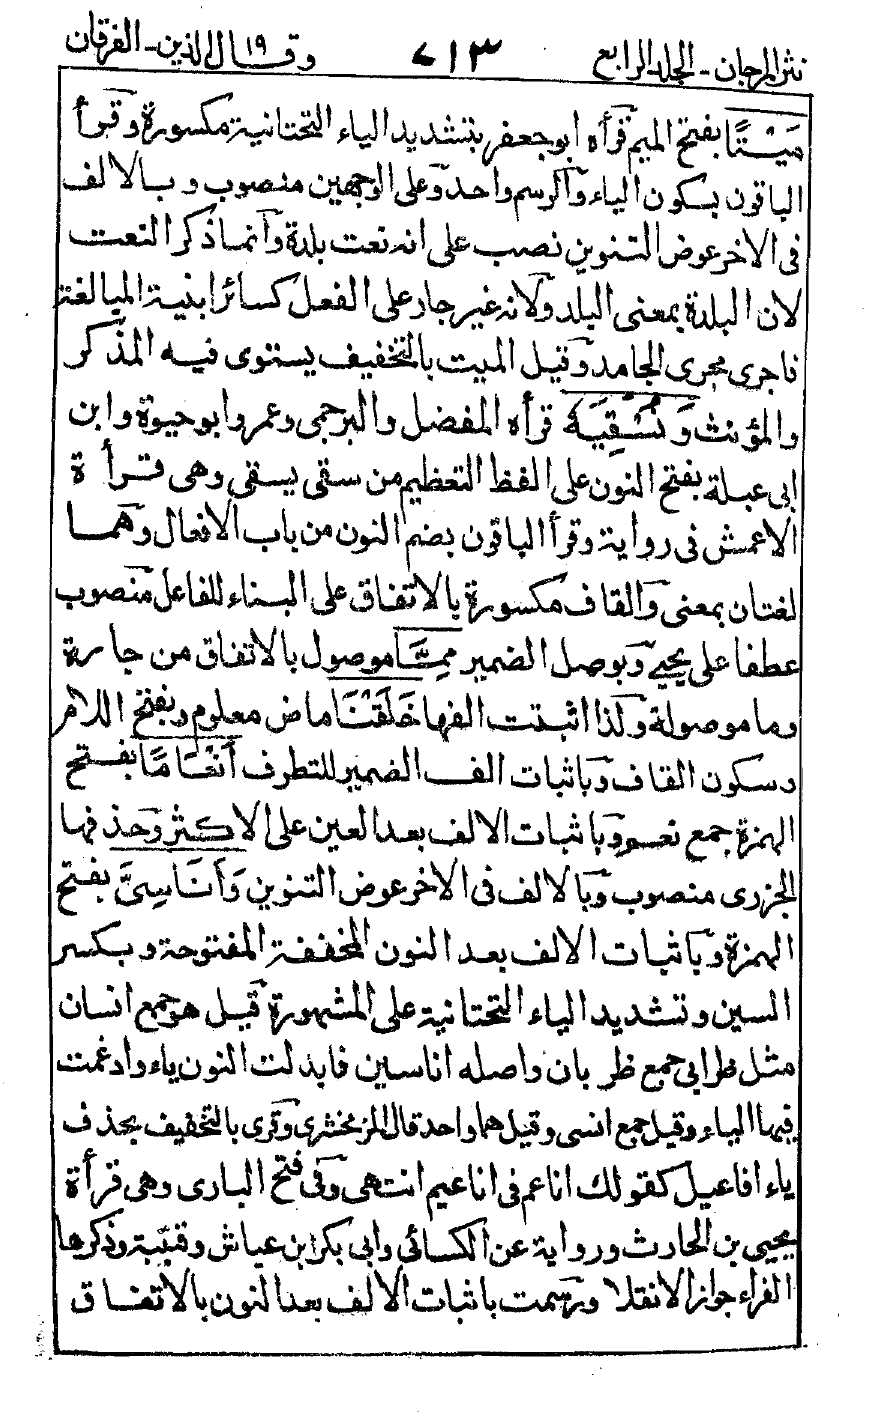 نثر المرجان - الجلد الرابع ٧١٣ وقال الذين ١٩ - الفرقان
مَيْتًا بفتح الميم قرأه ابو جعفر بتشديد الياء التحتانية مكسورة وقرأ
الباقون بسكون الياء والرسم واحد وعلى الوجهين منصوب وبالالف
فى الاخر عوض التنوين نصب على انه نعت بلدة وانما ذكر النعت
لان البلدة بمعنى البلد ولانه غير جار على الفعل كسائر ابنية المبالغة
فاجرى مجرى الجامد وقيل الميت بالتخفيف يستوى فيه المذكر
والمؤنث وَنُسْقِيَهُ قرأه المفضل والبرجمى وعمر وابو حيوة وابن
ابى عبلة بفتح النون على لفظ التعظيم من سقى يسقى وهى قرأة
الاعمش فى رواية وقرأ الباقون بضم النون من باب الافعال وهما
لغتان بمعنى والقاف مكسورة بالاتفاق على البناء للفاعل منصوب
عطفا على يحيى وبوصل الضمير مِمَّا موصول بالاتفاق من جارة
وما موصولة ولذا اثبتت الفها خَلَقْنَا ماض معلوم وبفتح اللام
وسكون القاف وباثبات الف الضمير للتطرف أَنْعَامًا بفتح
الهمزة جمع نعم وباثبات الالف بعد العين على الاكثر وحذفها
الجزرى منصوب وبالالف فى الاخر عوض التنوين وَأَنَاسِىَّ بفتح
الهمزة وباثبات الالف بعد النون المخففة المفتوحة وبكسر
السين وتشديد الياء التحتانية على المشهورة قيل هو جمع انسان
مثل ظرابى جمع ظربان واصله اناسين فابدلت النون ياء وادغمت
فيها الياء وقيل جمع انسى وقيل هما واحد قال الزمخشرى وقرى بالتخفيف بحذف
ياء افاعيل كقولك اناعم فى اناعيم انتهى وفى فتح البارى وهى قرأة
يحيى بن الحارث ورواية عن الكسائى وابى بكر ابن عياش وقتيبة وذكرها
الفراء جواز الانقلا ورسمت باثبات الالف بعد النون بالاتفاق